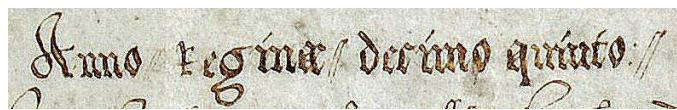 Anno Reginæ decimo quinto: